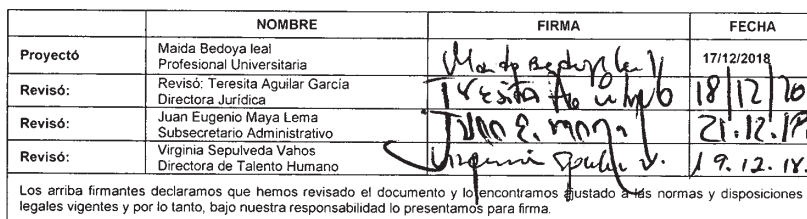 NOMBRE FIRMA FECHA
Proyectó Maida Bedoya leal
Profesional Universitaria Maida Bedoya leal 17/12/2018
Revisó: Revisó: Teresita Aguilar García
Directora Jurídica Teresita 18/12/20
Revisó: Juan Eugenio Maya Lema
Subsecretario Administrativo Juan E. maya. 21.12.
Revisó: Virginia Sepulveda Vahos
Directora de Talento Humano Virginia 19.12.18.
Los arriba firmantes declaramos que hemos revisado el documento y lo encontramos ajustado a las normas y disposiciones
legales vigentes y por lo tanto, bajo nuestra responsabilidad lo presentamos para firma.